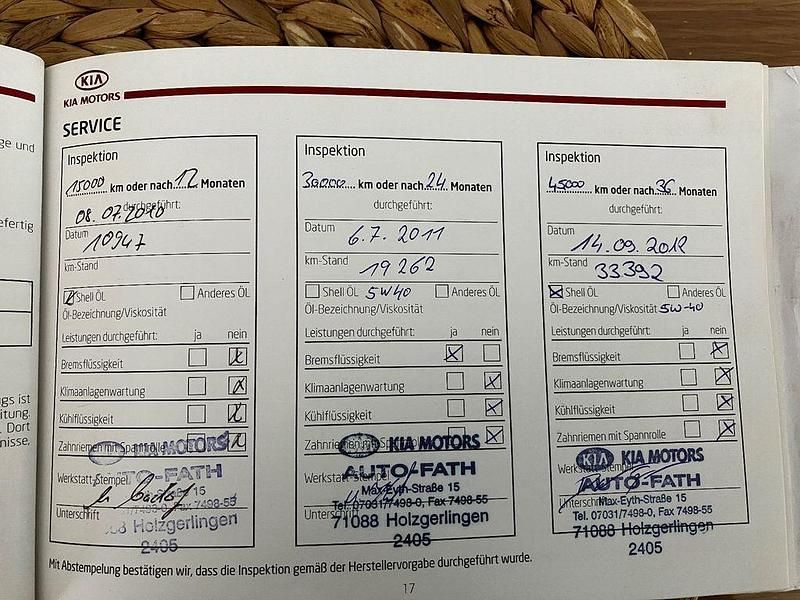 ge und
efertig
gs ist
itung.
Dort
nisse,
KIA
KIA MOTORS
SERVICE
Inspektion
15000 km oder nach 12 Monaten
durchgeführt:
08.07.2010
Datum
10947
km-Stand
Shell ÖL Anderes ÖL
Öl-Bezeichnung/Viskosität
Leistungen durchgeführt: ja nein
Bremsflüssigkeit
Klimaanlagenwartung
Kühlflüssigkeit
Zahnriemen mit Spannrolle
KIA MOTORS
Werkstatt-Stempel
AUTO-FATH
15
07031/7498-0, Fax 7498-55
Unterschrift
71088 Holzgerlingen
2405
Inspektion
30000 km oder nach 24 Monaten
durchgeführt:
Datum 6.7.2011
km-Stand 19262
Shell ÖL 5W40 Anderes ÖL
Öl-Bezeichnung/Viskosität
Leistungen durchgeführt: ja nein
Bremsflüssigkeit
Klimaanlagenwartung
Kühlflüssigkeit
Zahnriemen mit Spannrolle
KIA KIA MOTORS
Werkstatt-Stempel
AUTO-FATH
Max-Eyth-Straße 15
Tel. 07031/7498-0, Fax 7498-55
Unterschrift
71088 Holzgerlingen
2405
Inspektion
45000 km oder nach 36 Monaten
durchgeführt:
Datum
14.09.2012
km-Stand 33392
Shell ÖL Anderes ÖL
Öl-Bezeichnung/Viskosität 5W-40
Leistungen durchgeführt: ja nein
Bremsflüssigkeit
Klimaanlagenwartung
Kühlflüssigkeit
Zahnriemen mit Spannrolle
KIA KIA MOTORS
Werkstatt-Stempel
AUTO-FATH
Unterschrift Max-Eyth-Straße 15
Tel. 07031/7498-0, Fax 7498-55
71088 Holzgerlingen
2405
Mit Abstempelung bestätigen wir, dass die Inspektion gemäß der Herstellervorgabe durchgeführt wurde.
17